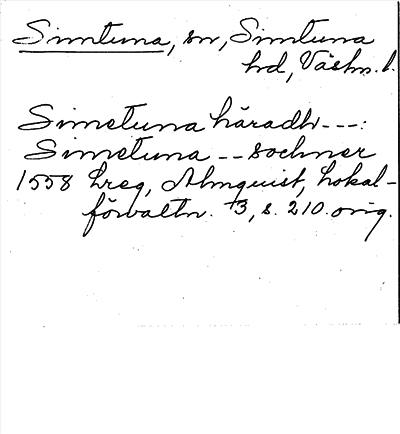 Simtuna, sn, Simtuna
hd, Västm. l.
Simetuna häradh ---:
Simetuna -- sochner
1558 hreg, Almquist, Lokal-
förvaltn. +3, s. 210. orig.